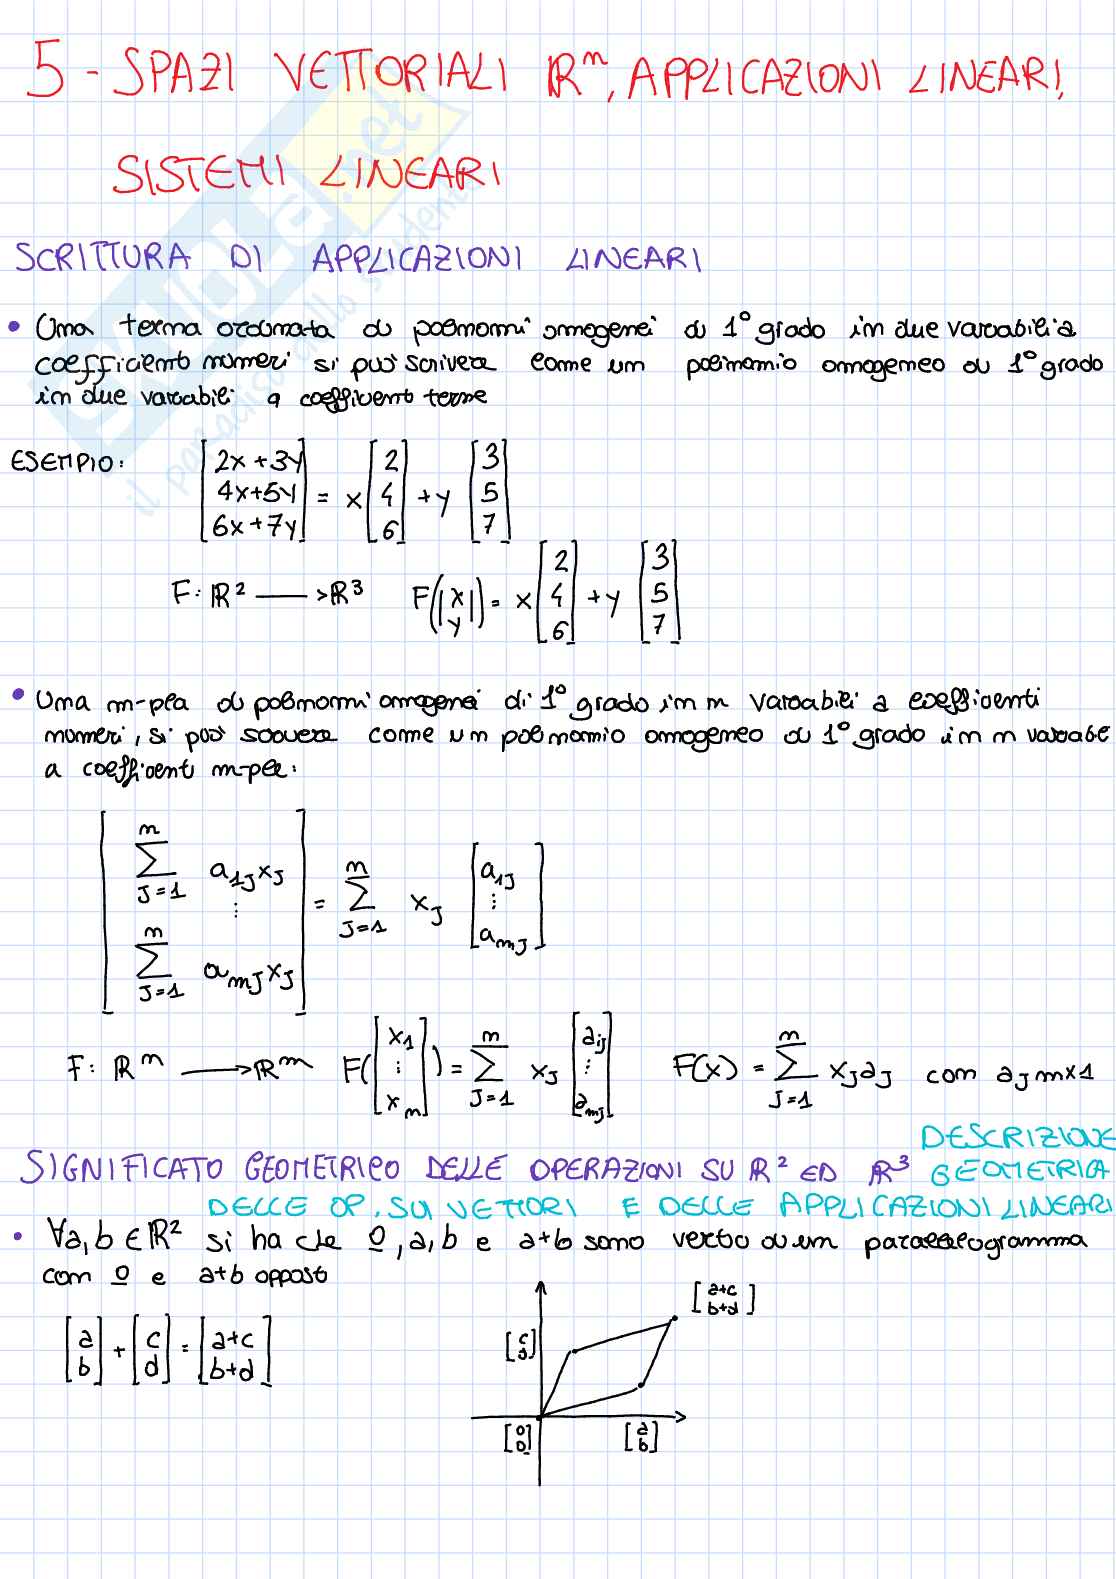 5 - SPAZI VETTORIALI ℝⁿ, APPLICAZIONI LINEARI,
SISTEMI LINEARI
SCRITTURA DI APPLICAZIONI LINEARI
• Una terna ordinata di polinomi omogenei di 1° grado in due variabili a
coefficienti numeri si può scrivere come un polinomio omogeneo di 1° grado
in due variabili a coefficienti terne
ESEMPIO: [2x+3y 4x+5y 6x+7y] = x [2 4 6] + y [3 5 7]
F: ℝ² → ℝ³ F([x y]) = x [2 4 6] + y [3 5 7]
• Una m-pla di polinomi omogenei di 1° grado in n variabili a coefficienti
numeri, si può scrivere come un polinomio omogeneo di 1° grado in n variabili
a coefficienti m-ple:
[∑_{J=1}^{n} a_{1J}x_J ⋮ ∑_{J=1}^{n} a_{mJ}x_J] = ∑_{J=1}^{n} x_J [a_{1J} ⋮ a_{mJ}]
F: ℝⁿ → ℝᵐ F([x₁ ⋮ x_n]) = ∑_{J=1}^{n} x_J [a_{ij} ⋮ a_{mj}] F(x) = ∑_{J=1}^{n} x_J a_J con a_J m×1
SIGNIFICATO GEOMETRICO DELLE OPERAZIONI SU ℝ² ED ℝ³ DESCRIZIONE GEOMETRICA
DELLE OP. SUI VETTORI E DELLE APPLICAZIONI LINEARI
• ∀a, b ∈ ℝ² si ha che 0, a, b e a+b sono vertici di un parallelogramma
con 0 e a+b opposti
[a b] + [c d] = [a+c b+d]
[a+c b+d]
[c d]
[0 0] [a b]
SKUOLA.net
il paradiso dello studente